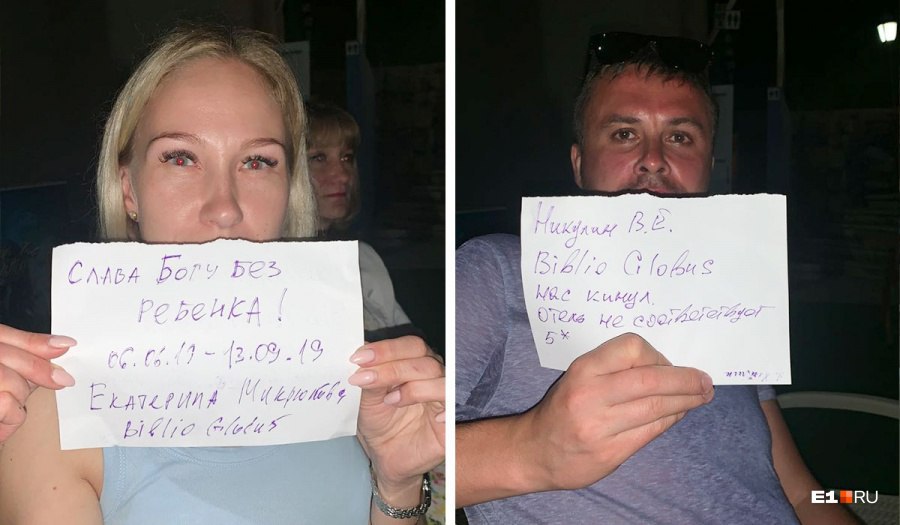 Слава Богу без
ребенка!
06.06.19 - 13.09.19
Екатерина Микрюкова
Biblio Globus
Никулин В.Е.
Biblio Globus
нас кинул.
Отель не соответствует
5*
E1.RU